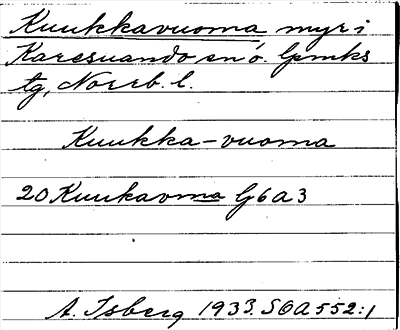 Kuukkavuoma myr i
Karesuando sn o. lpmks
tg, Norrb. l.
Kuukka-vuoma
20 Kuukavma G6A3
A. Isberg 1933. SOA 552:1